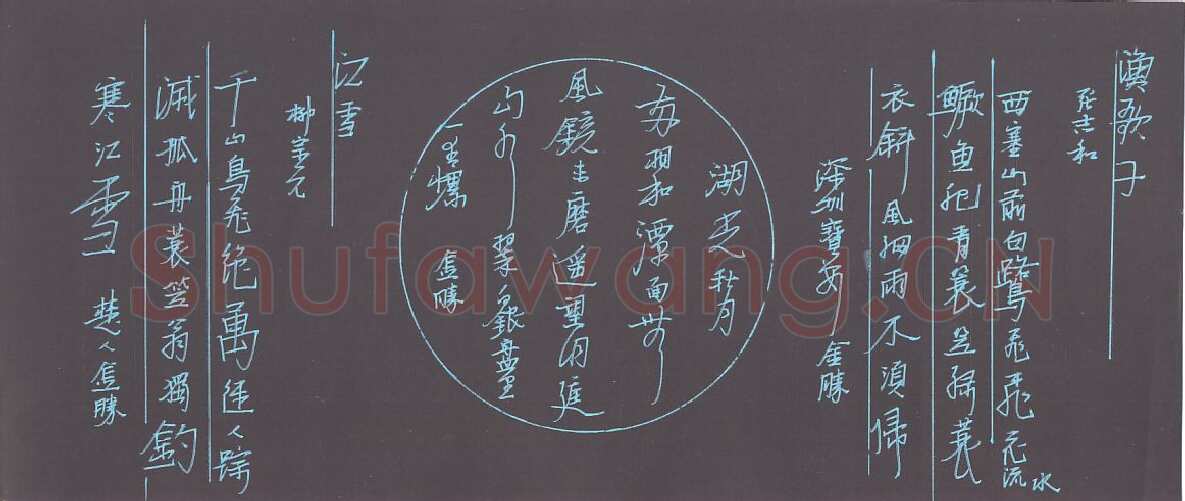 漁歌子
張志和
西塞山前白鷺飛桃花流水
鱖魚肥青蓑笠綠蓑
衣斜風細雨不須歸
深圳寶安 金勝
湖光秋月
兩相和潭面無
風鏡未磨遥望洞庭
山水翠白銀盤里
一青螺 金勝
江雪
柳宗元
千山鳥飛絕萬徑人踪
滅孤舟蓑笠翁獨釣
寒江雪 楚人金勝
Shufawang.CN